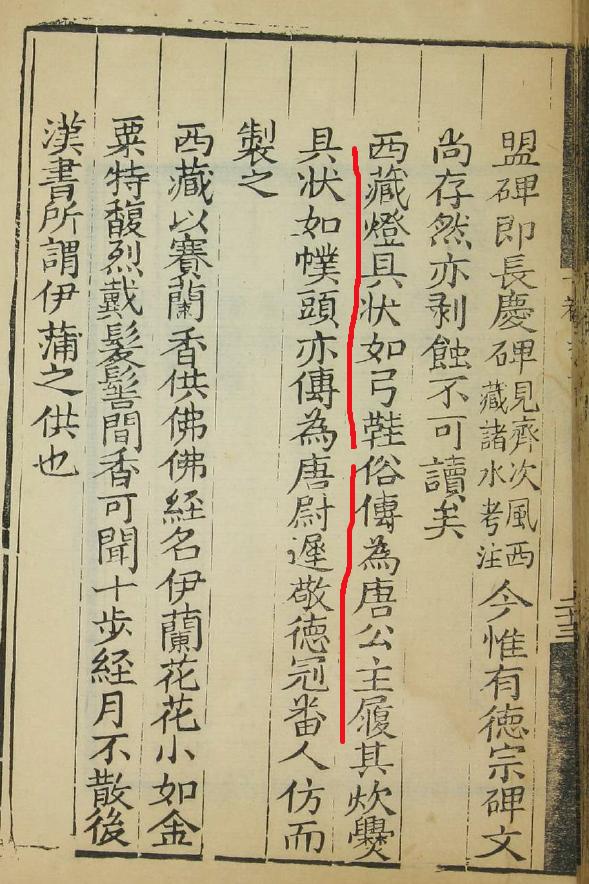 盟碑即長慶碑見齊次風西藏諸水考注今惟有徳宗碑文
尚存然亦剥蝕不可讀矣
西藏燈具状如弓鞋俗傳為唐公主履其炊爨
具状如幞頭亦傳為唐尉遲敬徳冠番人仿而
製之
西藏以賽蘭香供佛佛経名伊蘭花花小如金
粟特馥烈戴髮髻間香可聞十步経月不散後
漢書所謂伊蒲之供也